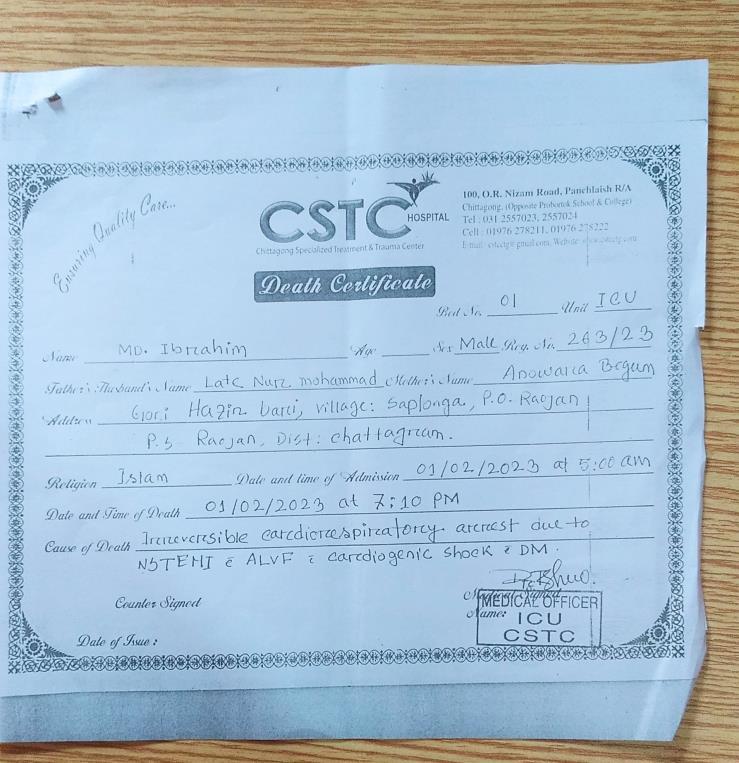 Ensuring Quality Care...
CSTC HOSPITAL
Chittagong Specialized Treatment & Trauma Center
100, O.R. Nizam Road, Panchlaish R/A
Chittagong. (Opposite Probortok School & College)
Tel : 031 2557023, 2557024
Cell : 01976 278211, 01976 278222
E-mail : cstcctg@gmail.com, Website : www.cstcctg.com
Death Certificate
Bed No. 01 Unit ICU
Name MD. Ibrahim Age Sex Male Reg. No. 263/23
Father's/Husband's Name Late Nur mohammad Mother's Name Anowara Begum
Address Hazir bari, village: Saplonga, P.O. Raojan
P.S Raojan, Dist: chattagram.
Religion Islam Date and time of Admission 01/02/2023 at 5:00 am
Date and Time of Death 01/02/2023 at 7:10 PM
Cause of Death Irreversible cardiorespiratory arrest due to
NSTEMI c̄ ALVF c̄ cardiogenic shock c̄ DM.
Counter Signed
Name:
MEDICAL OFFICER
ICU
CSTC
Date of Issue :